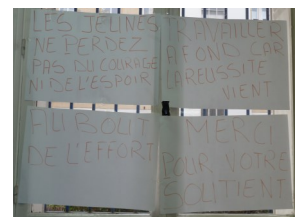 LES JEUNES
NE PERDEZ
PAS DU COURAGE
NI DE L'ESPOIR
TRAVAILLER
A FOND CAR
LA REUSSITE
VIENT
AU BOUT
DE L'EFFORT
MERCI
POUR VOTRE
SOUTIENT